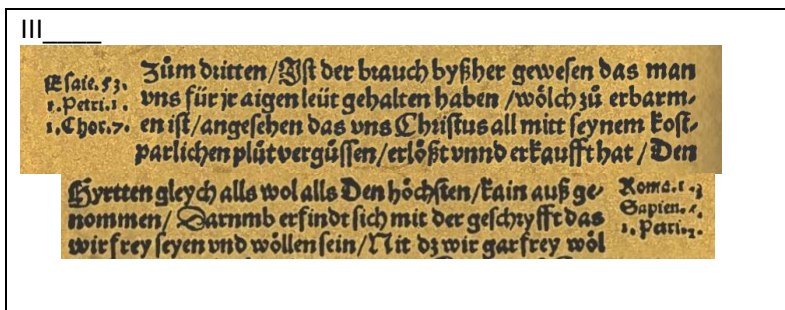 III____
Esaie.53.
1.Petri.1.
1.Chor.7.
Zům dritten/Ist der brauch byßher gewesen das man
vns für jr aigen leüt gehalten haben/wölch zů erbarm⸗
en ist/angesehen das vns Christus all mitt seynem kost⸗
parlichen plůt vergüssen/erlößt vnnd erkaufft hat/Den
Hyrtten gleych alls wol alls Den höchsten/kain auß ge⸗
nommen/Darnmb erfindt sich mit der geschryfft das
wir frey seyen vnd wöllen sein/Nit dz wir gar frey wöl
Roma.
Sapien.
1.Petri.